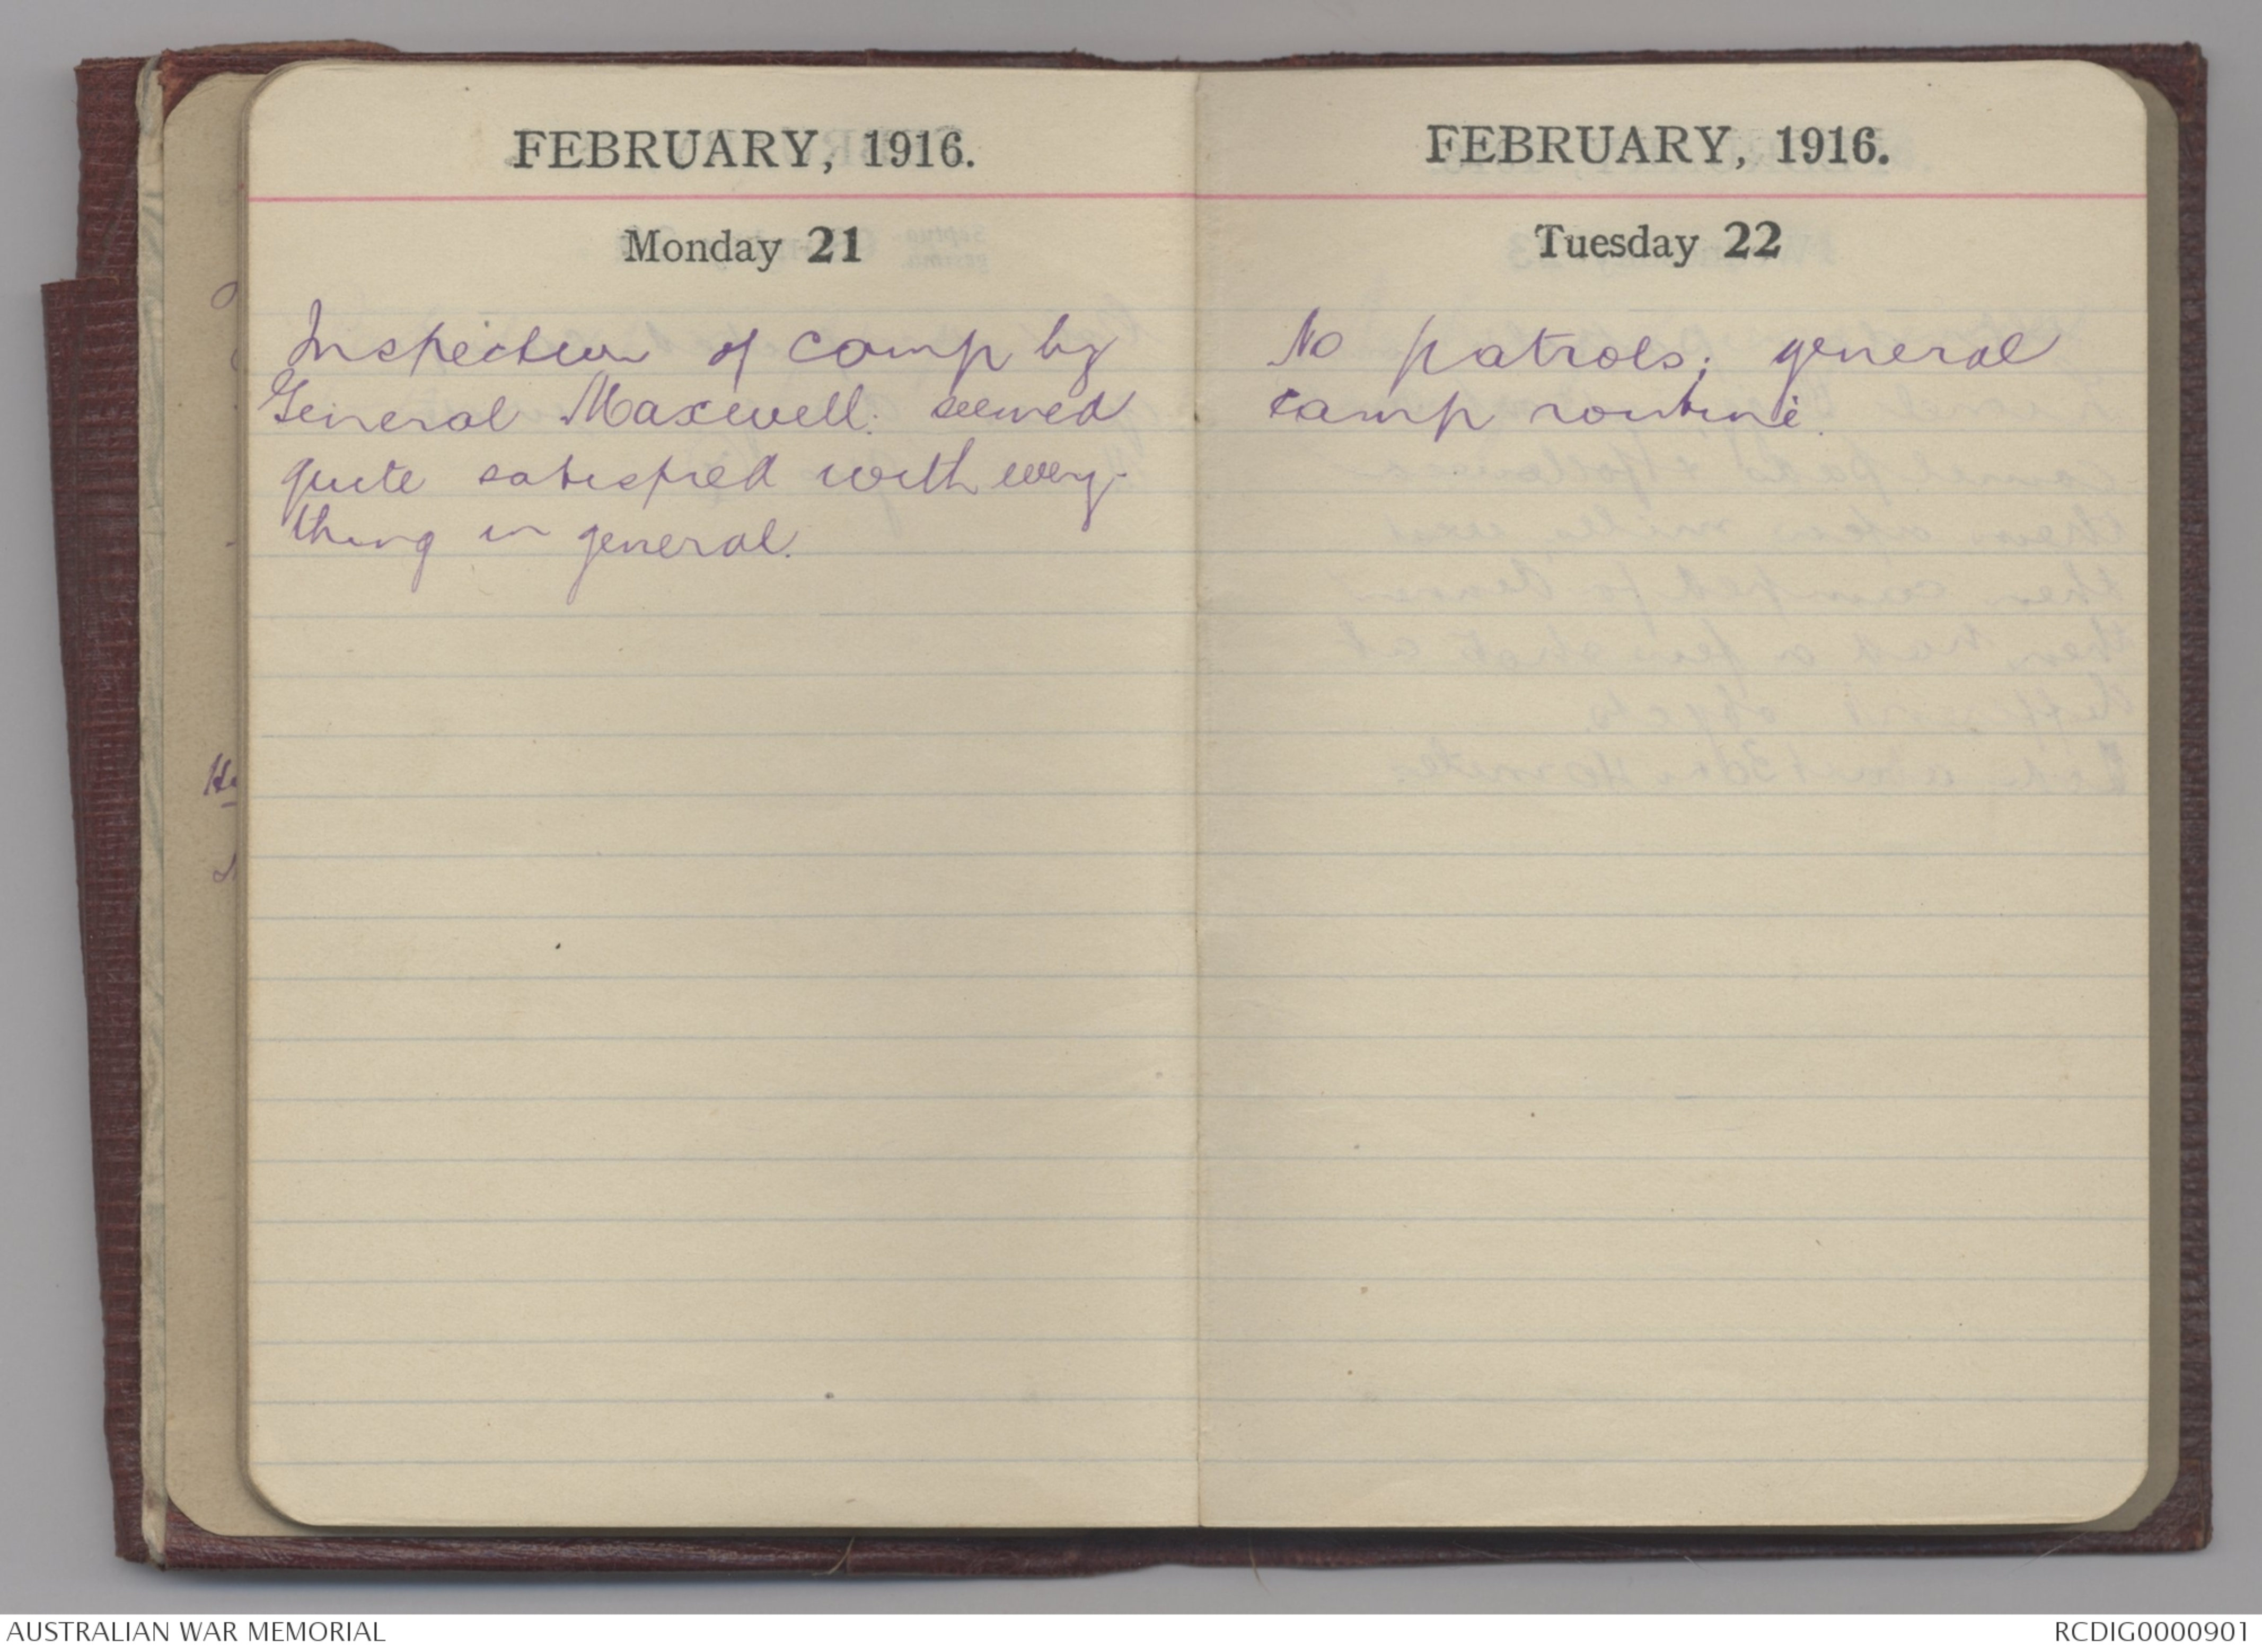 FEBRUARY, 1916.
Monday 21
Inspection of camp by
General Maxwell: seemed
quite satisfied with every-
thing in general.
FEBRUARY, 1916.
Tuesday 22
No patrols; general
camp routine.
AUSTRALIAN WAR MEMORIAL
RCDIG0000901